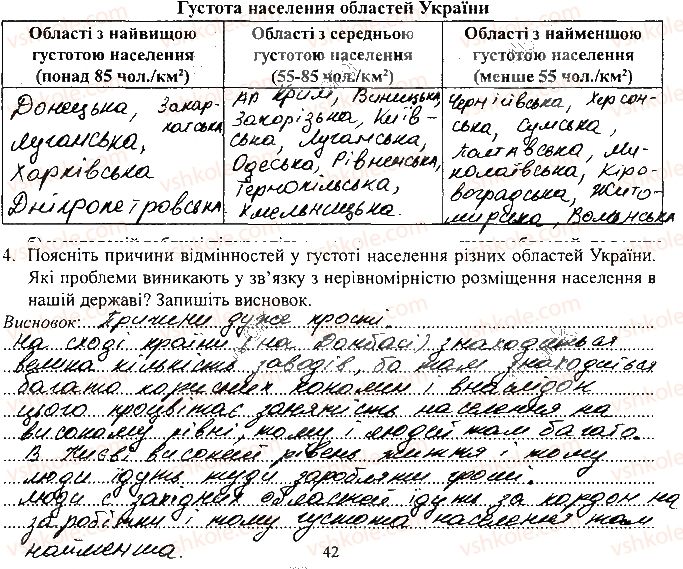 Густота населення областей України
Області з найвищою густотою населення (понад 85 чол./км²)
Області з середньою густотою населення (55-85 чол./км²)
Області з найменшою густотою населення (менше 55 чол./км²)
Донецька, Закар-
патська
Луганська,
Харківська
Дніпропетровська
АР Крим, Вінницька,
Запорізька, Київ-
ська, Луганська,
Одеська, Рівненська,
Тернопільська,
Хмельницька.
Чернігівська, Херсон-
ська, Сумська,
Полтавська, Ми-
колаївська, Кіро-
воградська, Жито-
мирська, Волинська
4. Поясніть причини відмінностей у густоті населення різних областей України.
Які проблеми виникають у зв'язку з нерівномірністю розміщення населення в
нашій державі? Запишіть висновок.
Висновок: Причини дуже прості.
На сході країни (на Донбасі) знаходиться
велика кількість заводів, бо там знаходиться
багато корисних копалин і внаслідок
цього процвітає занятість населення на
високому рівні, тому і людей там багато.
В Києві високий рівень життя і тому
люди їдуть туди заробляти гроші.
Люди с західних областей їдуть за кордон на
заробітки і тому густота населення там
найменша.
42